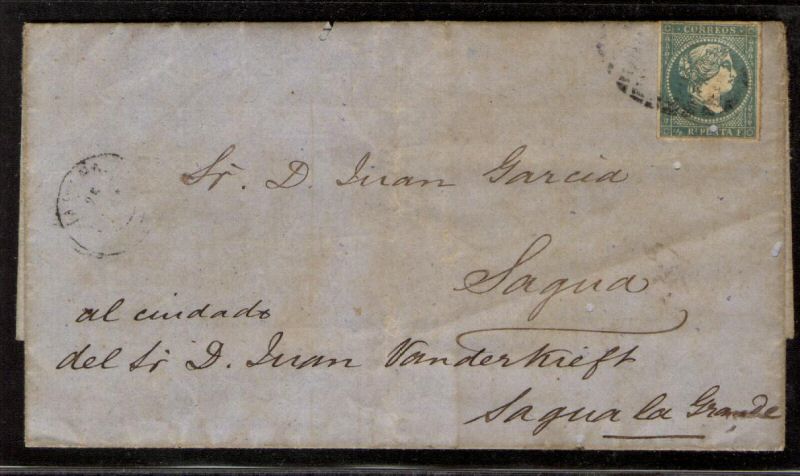 CORREOS
½ Rl. PLATA F.
Sr. D. Juan Garcia
Sagua
al cuidado
del Sr D. Juan Vanderkieft
Sagua la Grande